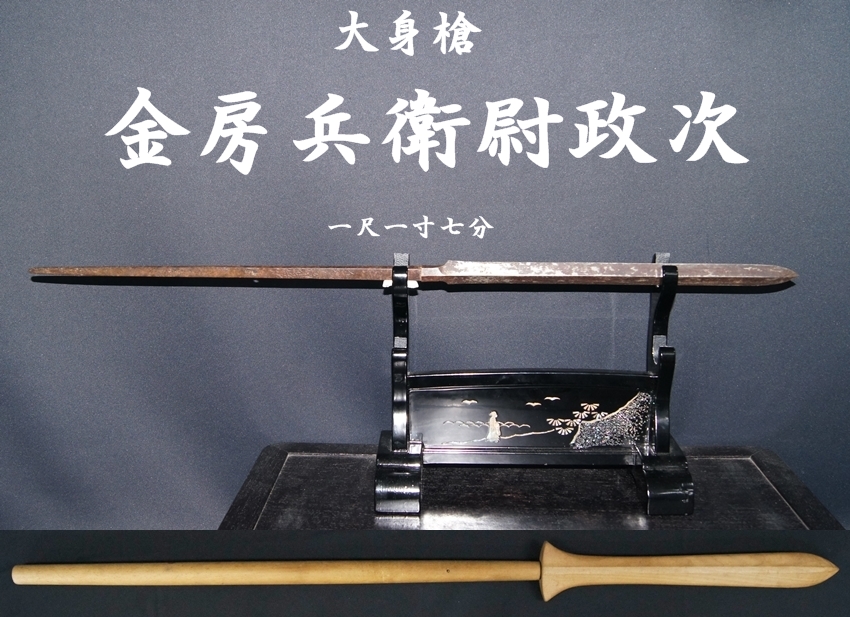 大身槍
金房兵衛尉政次
一尺一寸七分